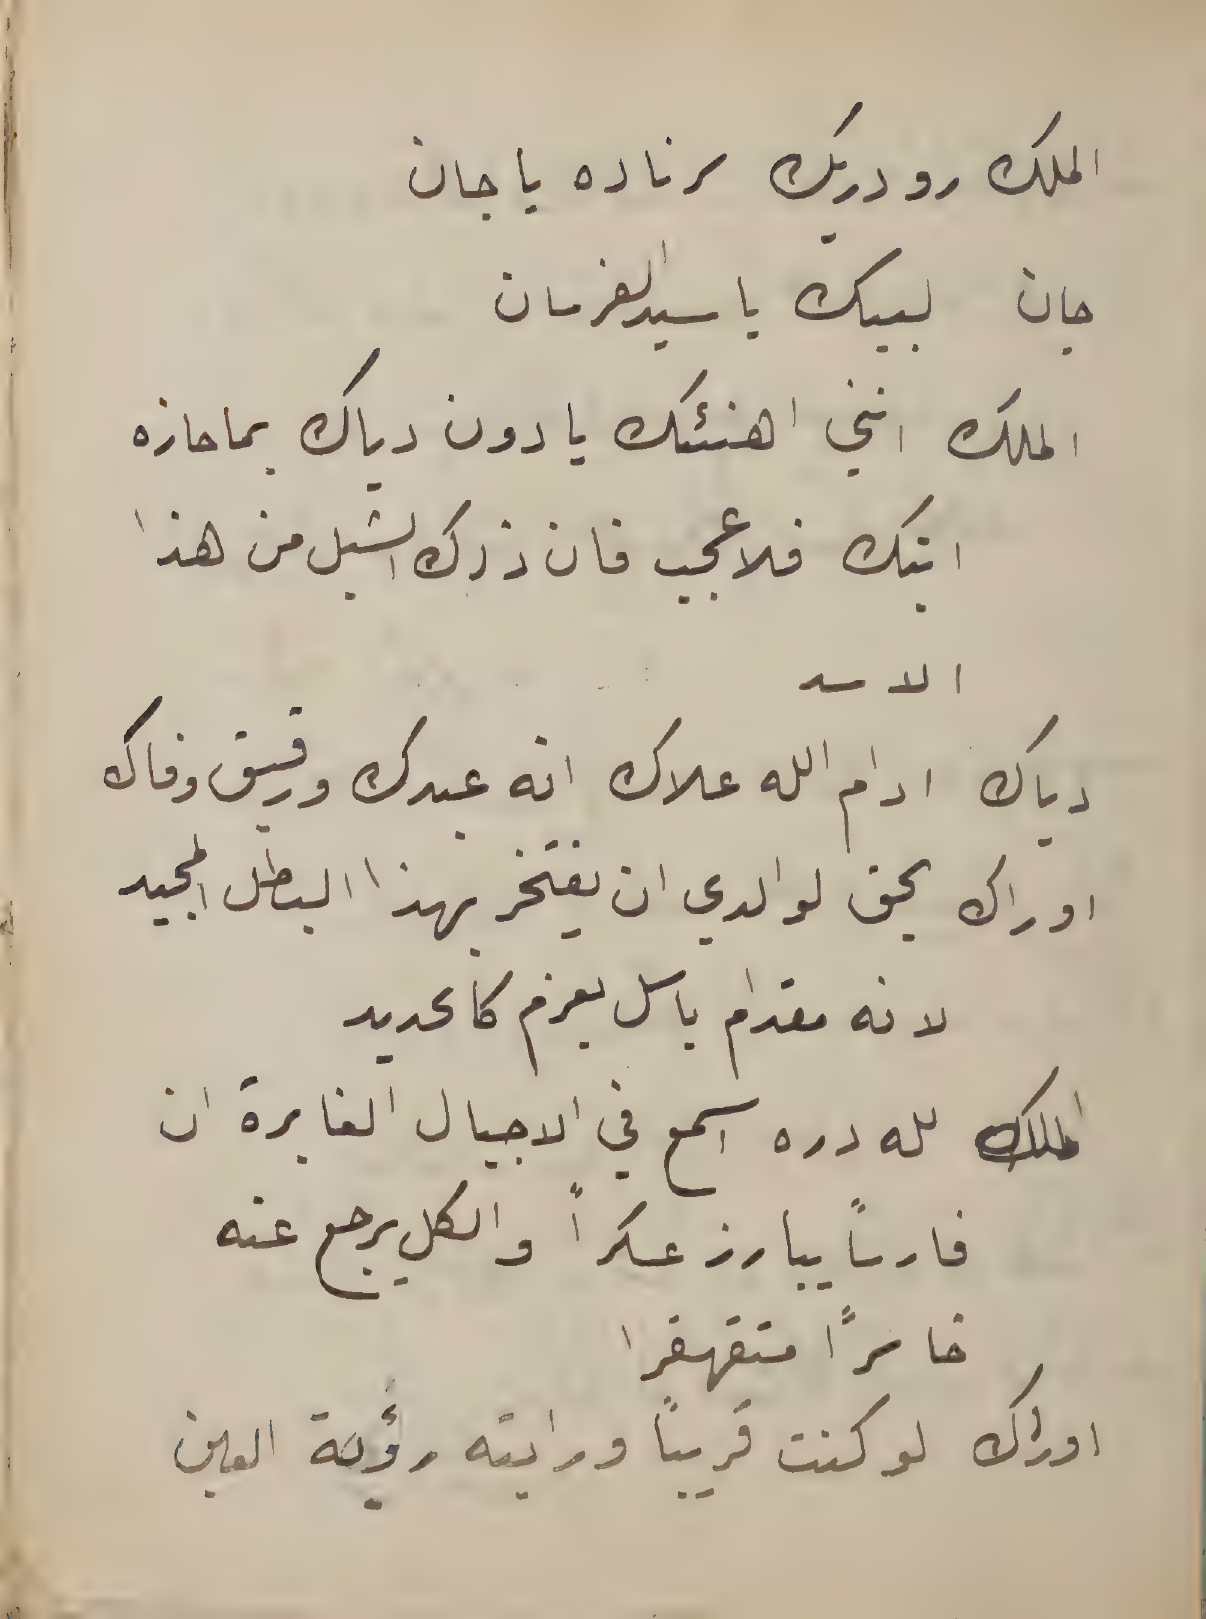 الملك رودريك سرناده يا جان
جان لبيك يا سيد الفرسان
الملك انني اهنئك يا دون دياك بما حازه
ابنك فلا عجب فان ذلك الشبل من هذا
الاسد
دياك ادام الله علاك انه عبدك ورقيق وفاك
اوراك يحق لوالدي ان يفتخر بهذا البطل المجيد
لانه مقدام باسل بعزم كالحديد
الملك لله دره اسمع في الاجيال الغابرة ان
فارساً يبارز عسكراً والكل يرجع عنه
خاسراً متقهقرا
اوراك لو كنت قريباً ورايته رؤية العين